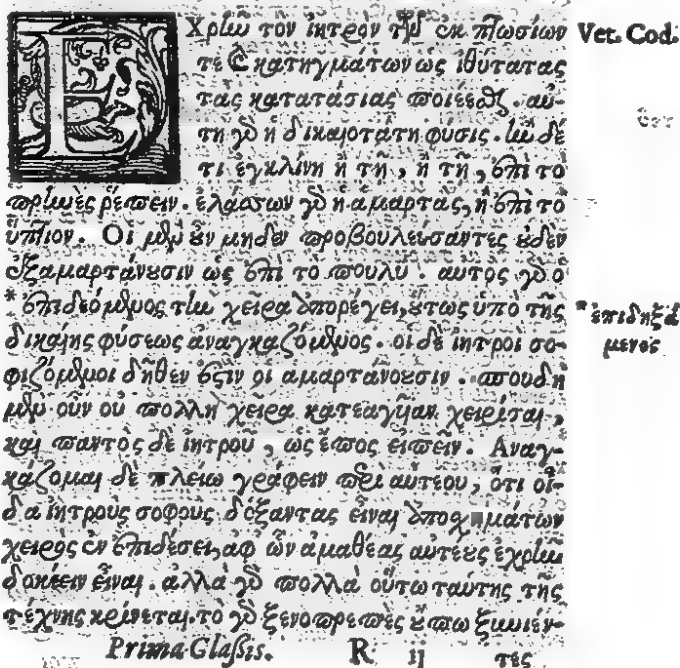 ΕΧρῆν τὸν ἰητρὸν τῶν ἐκπτωσίων Vet. Cod.
τε καὶ κατηγμάτων ὡς ἰθυτάτας
τὰς κατατάσιας ποιέεσθαι. αὕ-
τη γὰρ ἡ δικαιοτάτη φύσις. ἢν δέ
τι ἐγκλίνη ἢ τῆ, ἢ τῆ, ἐπὶ τὸ
πρηνὲς ῥέπειν. ἐλάσσων γὰρ ἡ ἁμαρτὰς, ἢ ἐπὶ τὸ
ὕπτιον. Οἱ μὲν οὖν μηδὲν προβουλεύσαντες οὐδὲν
ἐξαμαρτάνουσιν ὡς ἐπὶ τὸ πουλύ. αὐτὸς γὰρ ὁ
* ἐπιδεόμενος τὴν χεῖρα ἀπορέγει, οὕτως ὑπὸ τῆς * ἐπιδηξά
δικαίης φύσεως ἀναγκαζόμενος. οἱ δὲ ἰητροὶ σο- μενος
φιζόμενοι δῆθεν ἔστιν οἳ ἁμαρτάνουσιν. σπουδὴ
μὲν οὖν οὐ πολλὴ χεῖρα κατεαγῆαν χειρίσαι,
καὶ παντὸς δὲ ἰητροῦ, ὡς ἔπος εἰπεῖν. Αναγ-
κάζομαι δὲ πλείω γράφειν περὶ αὐτέου, ὅτι οἶ-
δα ἰητροὺς σοφοὺς δόξαντας εἶναι ἀπὸ σχημάτων
χειρὸς ἐν ἐπιδέσει, ἀφ' ὧν ἀμαθέας αὐτέους ἐχρῆν
δοκέειν εἶναι. ἀλλὰ γὰρ πολλὰ οὕτω ταύτης τῆς
τέχνης κρίνεται. τὸ γὰρ ξενοπρεπὲς οὔπω ξυνιέν-
Prima Classis. R ij τες